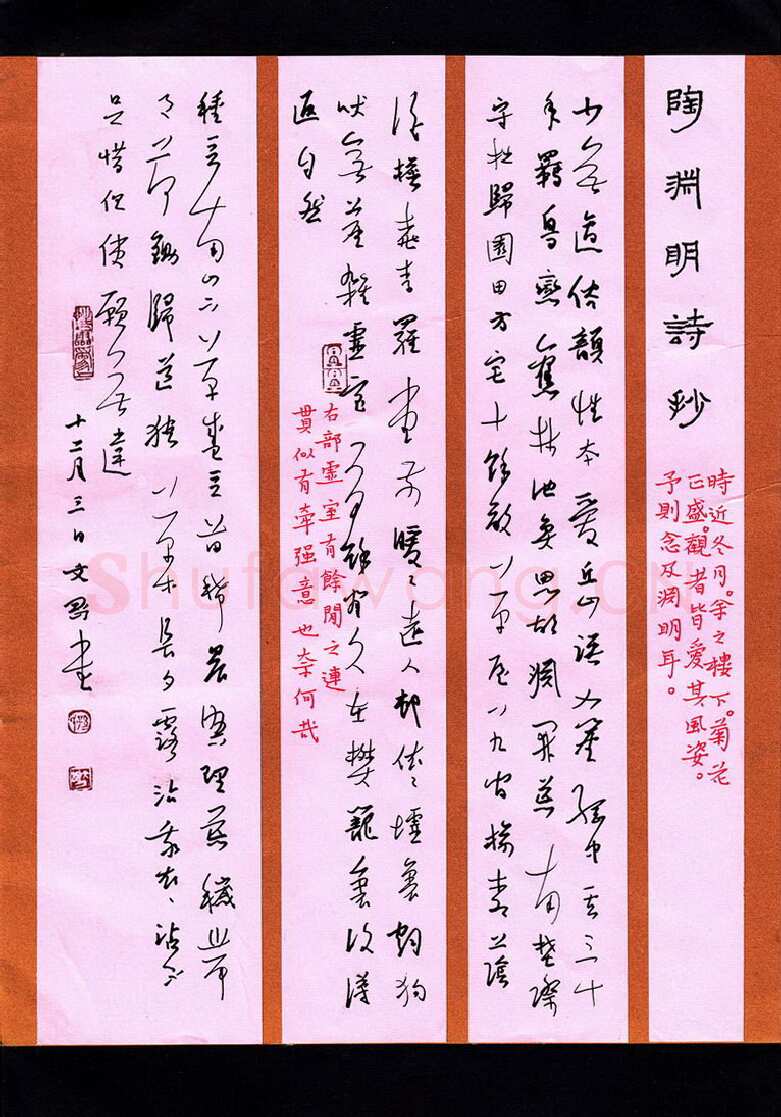 陶淵明詩抄
時近冬月。余之樓下。菊花
正盛。觀者皆愛其風姿。
予則念及淵明耳。
少無適俗韻性本愛丘山誤入塵網中一去三十
年羈鳥戀舊林池魚思故淵開荒南野際
守拙歸園田方宅十餘畝草屋八九間榆柳蔭
後檐桃李羅堂前曖〻遠人村依〻墟裏烟狗
吠無塵雜虛室有餘閒久在樊籠裏復得
返自然
右部虛室有餘閒之連
貫似有牽强意也奈何哉
種豆南山下草盛豆苗稀晨興理荒穢帶
月荷鋤歸道狹草木長夕露沾我衣〻沾不
足惜但使願無違
十二月三日文書
Shufawang.CN